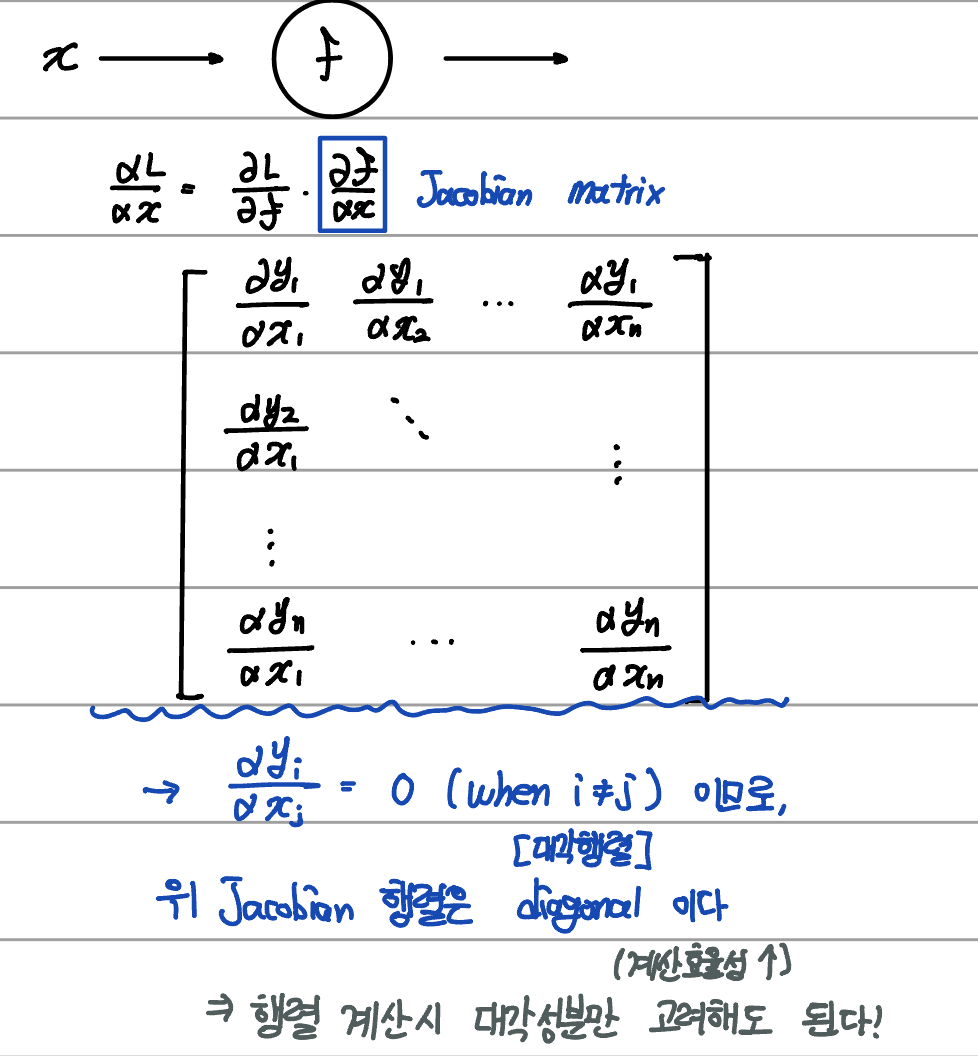 x → f →
∂L/∂x = ∂L/∂f · ∂f/∂x Jacobian matrix
∂y₁/∂x₁ ∂y₁/∂x₂ ... ∂y₁/∂xₙ
∂y₂/∂x₁ ⋱ ⋮
⋮
∂yₙ/∂x₁ ... ∂yₙ/∂xₙ
→ ∂yᵢ/∂xⱼ = 0 (when i≠j) 이므로,
[대각행렬]
위 Jacobian 행렬은 diagonal 이다
(계산효율성 ↑)
⇒ 행렬 계산시 대각성분만 고려해도 된다!